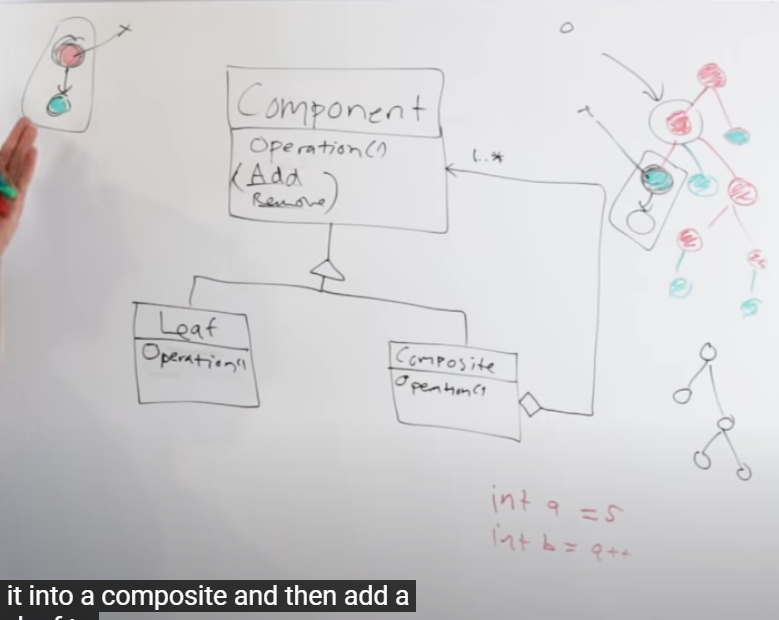 Component
Operation()
(Add
Remove)
1..*
Leaf
Operation()
Composite
Operation()
int a = 5
int b = a++
it into a composite and then add a